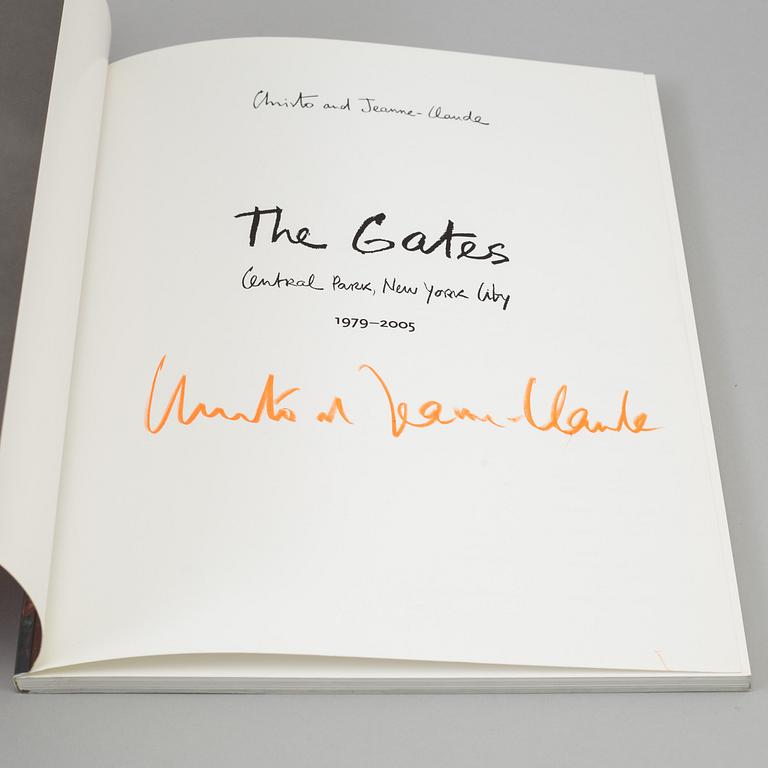 Christo and Jeanne-Claude
The Gates
Central Park, New York City
1979–2005
Christo and Jeanne-Claude